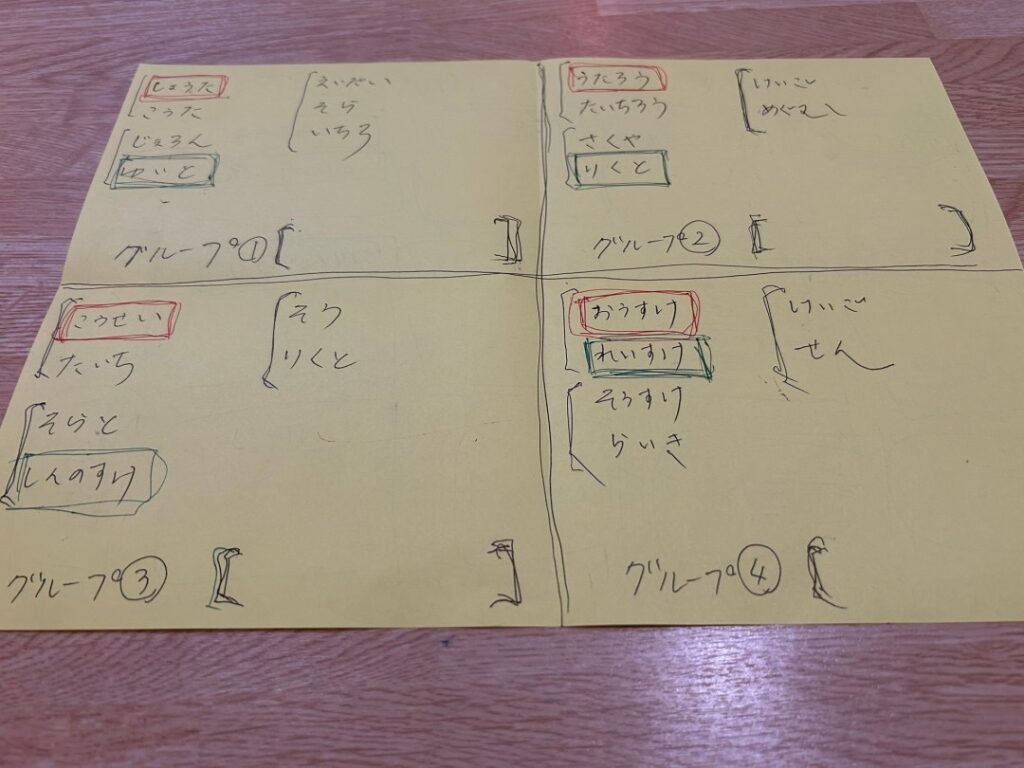 しょうた
こうた
じぇろん
ゆいと
えいだい
そら
いちろ
グループ①[ ]
うたろう
たいちろう
さくや
りくと
けいご
めぐむ
グループ②[ ]
こうせい
たいち
そらと
しんのすけ
そう
りくと
グループ③[ ]
おうすけ
れいすけ
そうすけ
らいき
けいご
せん
グループ④[